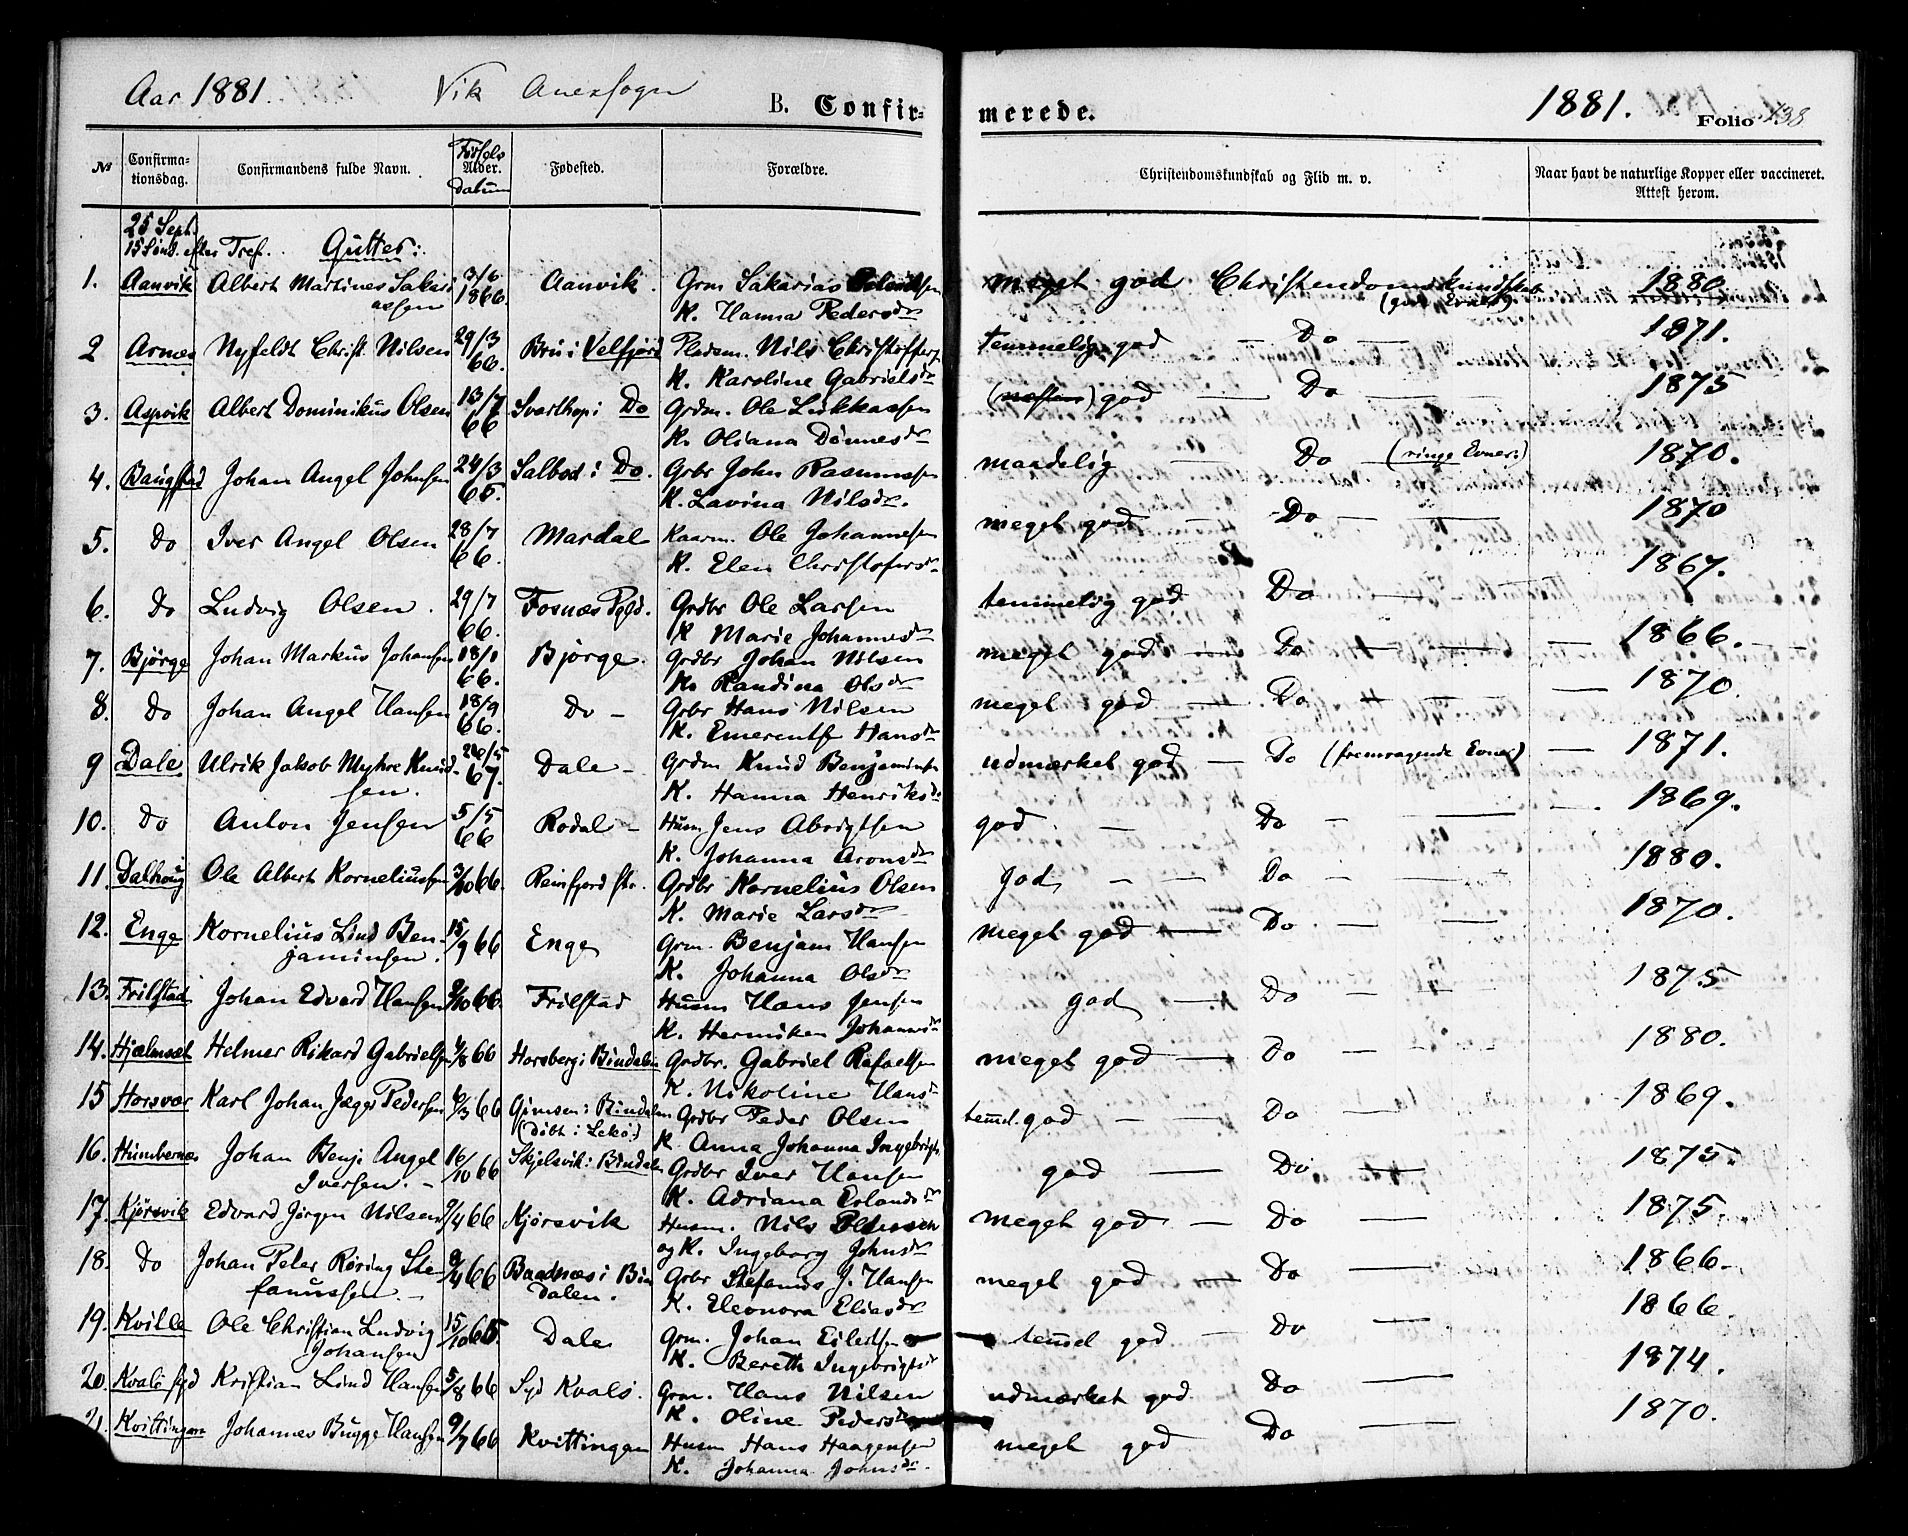 Aar 1881. Vik Anexsogn B. Confir-
merede. 1881. Folio 138
No Confirma-tionsdag. Confirmandens fulde Navn. Fødsels Alder. Datum Fødested. Forældre. Christendomskundskab og Flid m. v. Naar havt de naturlige Kopper eller vaccineret. Attest herom.
25 Sept.
15 Sönd. efter Tref. Gutter:
1. Aanvik Albert Martines Sakari- 3/6 Aanvik. Grm Sakarias
assen 1866. K. Hanna Pedersdr
meget god Christendomskundskab (gode Evner) 1880.
2 Arnæs Nyfeldt Christ. Nilsen 29/3 Bru i Velfjord Pladsm. Nils Christoffers.
66. K. Karoline Gabrielsdr
temmelig god — Do — 1871.
3. Aspvik Albert Dominikus Olsen 13/7 Svarthop i Do Grdm. Ole Lukkassen
66 K. Oliana Dønnesdr
(næsten) god — Do — 1875
4. Baugstad Johan Angel Johnsen 24/3 Salbod i Do. Grbr John Rasmussen
65. K. Lavina Nilsdr.
maadelig — Do — (ringe Evner) 1870.
5. Do Iver Angel Olsen 28/7 Mardal Kaarm. Ole Johannesen
66. K. Elen Christofersdr
meget god — Do — 1870
6. Do Ludvig Olsen. 29/7 Fosnæs Pgld. Grdbr Ole Larsen
66. K Marie Johannesdr
temmelig god Do — 1867.
7. Bjørge Johan Markus Johansen 18/1 Bjørge. Grdbr Johan Nilsen
66. K. Randina Olsdr
meget god — Do — 1866.
8. Do Johan Angel Hansen 18/9 Do — Grbr Hans Nilsen
66. K. Emerentse Hansdr
meget god — Do — 1870.
9 Dale Ulrik Jakob Myhre Knud- 26/5 Dale — Grdm Knud Benjaminsen
sen. 67. K. Hanna Henriksdr
udmærket god — Do (fremragende Evner) — 1871.
10. Do Anton Jensen 5/5 Rødal — Husm Jens Abrigtsen
66 K. Johanna Aronsdr
god — Do — 1869.
11. Dalhoug Ole Albert Korneliussen 3/10 66. Reinfjord str. Grdbr Kornelius Olsen
K. Marie Larsdr
god — Do — 1880.
12. Enge Kornelius Lind Ben- 15/9 66 Enge Grm. Benjam Hansen
jaminsen. K. Johanna Olsdr
meget god — Do — 1870.
13. Frilstad Johan Edvard Hansen 9/10 66. Frilstad Husm Hans Jensen
K. Herniken Johannesdr
god — Do — 1875
14. Hjælmsæt Helmer Rikard Gabrielsen 4/8 66 Horsberg i Bindalen Grdbr. Gabriel Rafaelsen
K. Nikoline Hansdr
meget god — Do — 1880.
15 Horsvær Karl Johan Jæger Pedersen 6/3 66 Gimsen i Bindalen Grdbr Peder Olsen
(Døbt i Lekø) K. Anna Johanna Ingebrigtsdr
teml. god — Do — 1869.
16. Humbernæs Johan Benj. Angel 16/10 66 Skjelsvik i Bindalen Grdbr Iver Hansen
Iversen. — K. Adriana Erlandsdr
god — Do — 1875.
17. Kjørsvik Edvard Jørgen Nilsen 9/4 66 Kjørsvik Husm. Nils
og K. Ingeborg Johnsdr
meget god — Do — 1875.
18. Do Johan Peter Røring Ste- 9/4 66 Baadnæs i Bin- Grbr Stefanus J. Hansen
fanussen. — dalen. K. Eleonora Eliasdr
meget god — Do — 1866.
19. Kville Ole Christian Ludvig 15/10 65. Dale Grm. Johan Eilertsen
Johansen K. Bereth Ingebrigtsdr
teml god — Do — 1866.
20. Kvalø syd Kristian Lind Hansen 5/8 66 Syd Kvalø. Grm. Hans Nilsen
K. Oline Pedersdr
udmærket god Do — 1874.
21. Kvittingen Johannes Bugge Hansen 9/7 66 Kvittingen Husm Hans Haagensen
K. Johanna Johnsdr.
meget god Do — 1870.